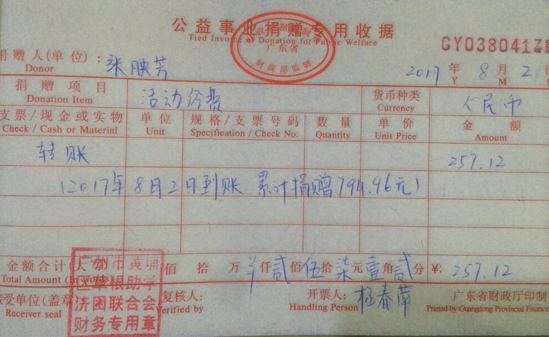 公益事业捐赠专用收据
Tied Invoice of Donation for Public Welfare
广东省
财政部监制
GY038041
捐赠人(单位):
Donor
2017 年 8 月 2 日
Y M
捐赠项目 活动经费 货币种类 人民币
Donation Item Currency
支票/现金或实物 单位 规格/支票号码 数量 单价 金额
Check / Cash or Material Unit Specification / Check No. Quantity Unit Price Amount
转账 257.12
(2017年8月2日到账 累计捐赠794.96元)
金额合计(大写) 佰 拾 万 仟贰佰伍拾柒元壹角贰分 ¥: 257.12
Total Amount (In
接受单位(盖章 复核人: 开票人: 杨春萍 广东省财政厅印制
Receiver seal Verified by Handling Person Printed by Guangdong Provincial Finance
广州市黄埔
区萃根助学
济困联合会
财务专用章